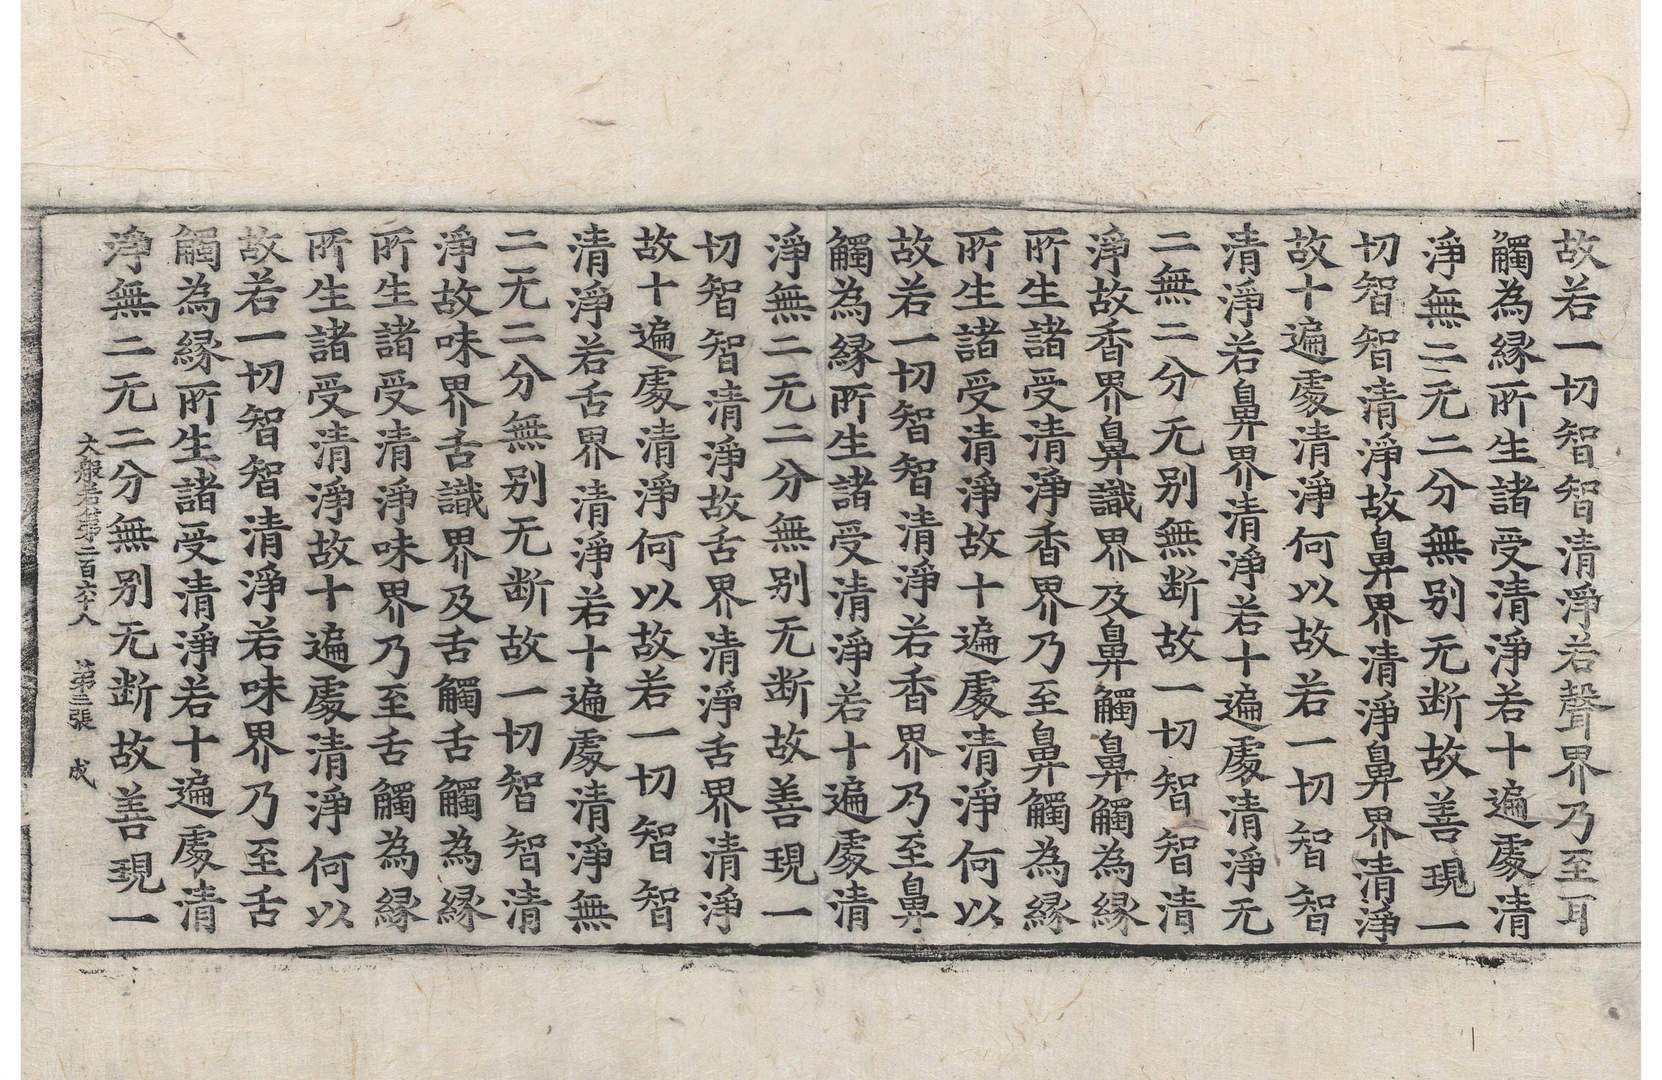 故若一切智智清淨若聲界乃至耳
觸為縁所生諸受清淨若十遍處清
淨無二无二分無别无断故善現一
切智智清淨故鼻界清淨鼻界清淨
故十遍處清淨何以故若一切智智
清淨若鼻界清淨若十遍處清淨无
二無二分无别無断故一切智智清
淨故香界鼻識界及鼻觸鼻觸為縁
所生諸受清淨香界乃至鼻觸為縁
所生諸受清淨故十遍處清淨何以
故若一切智智清淨若香界乃至鼻
觸為縁所生諸受清淨若十遍處清
淨無二无二分無别无断故善現一
切智智清淨故舌界清淨舌界清淨
故十遍處清淨何以故若一切智智
清淨若舌界清淨若十遍處清淨無
二无二分無别无断故一切智智清
淨故味界舌識界及舌觸舌觸為縁
所生諸受清淨味界乃至舌觸為縁
所生諸受清淨故十遍處清淨何以
故若一切智智清淨若味界乃至舌
觸為縁所生諸受清淨若十遍處清
淨無二无二分無别无断故善現一
大般若第二百六十八 第三張 成